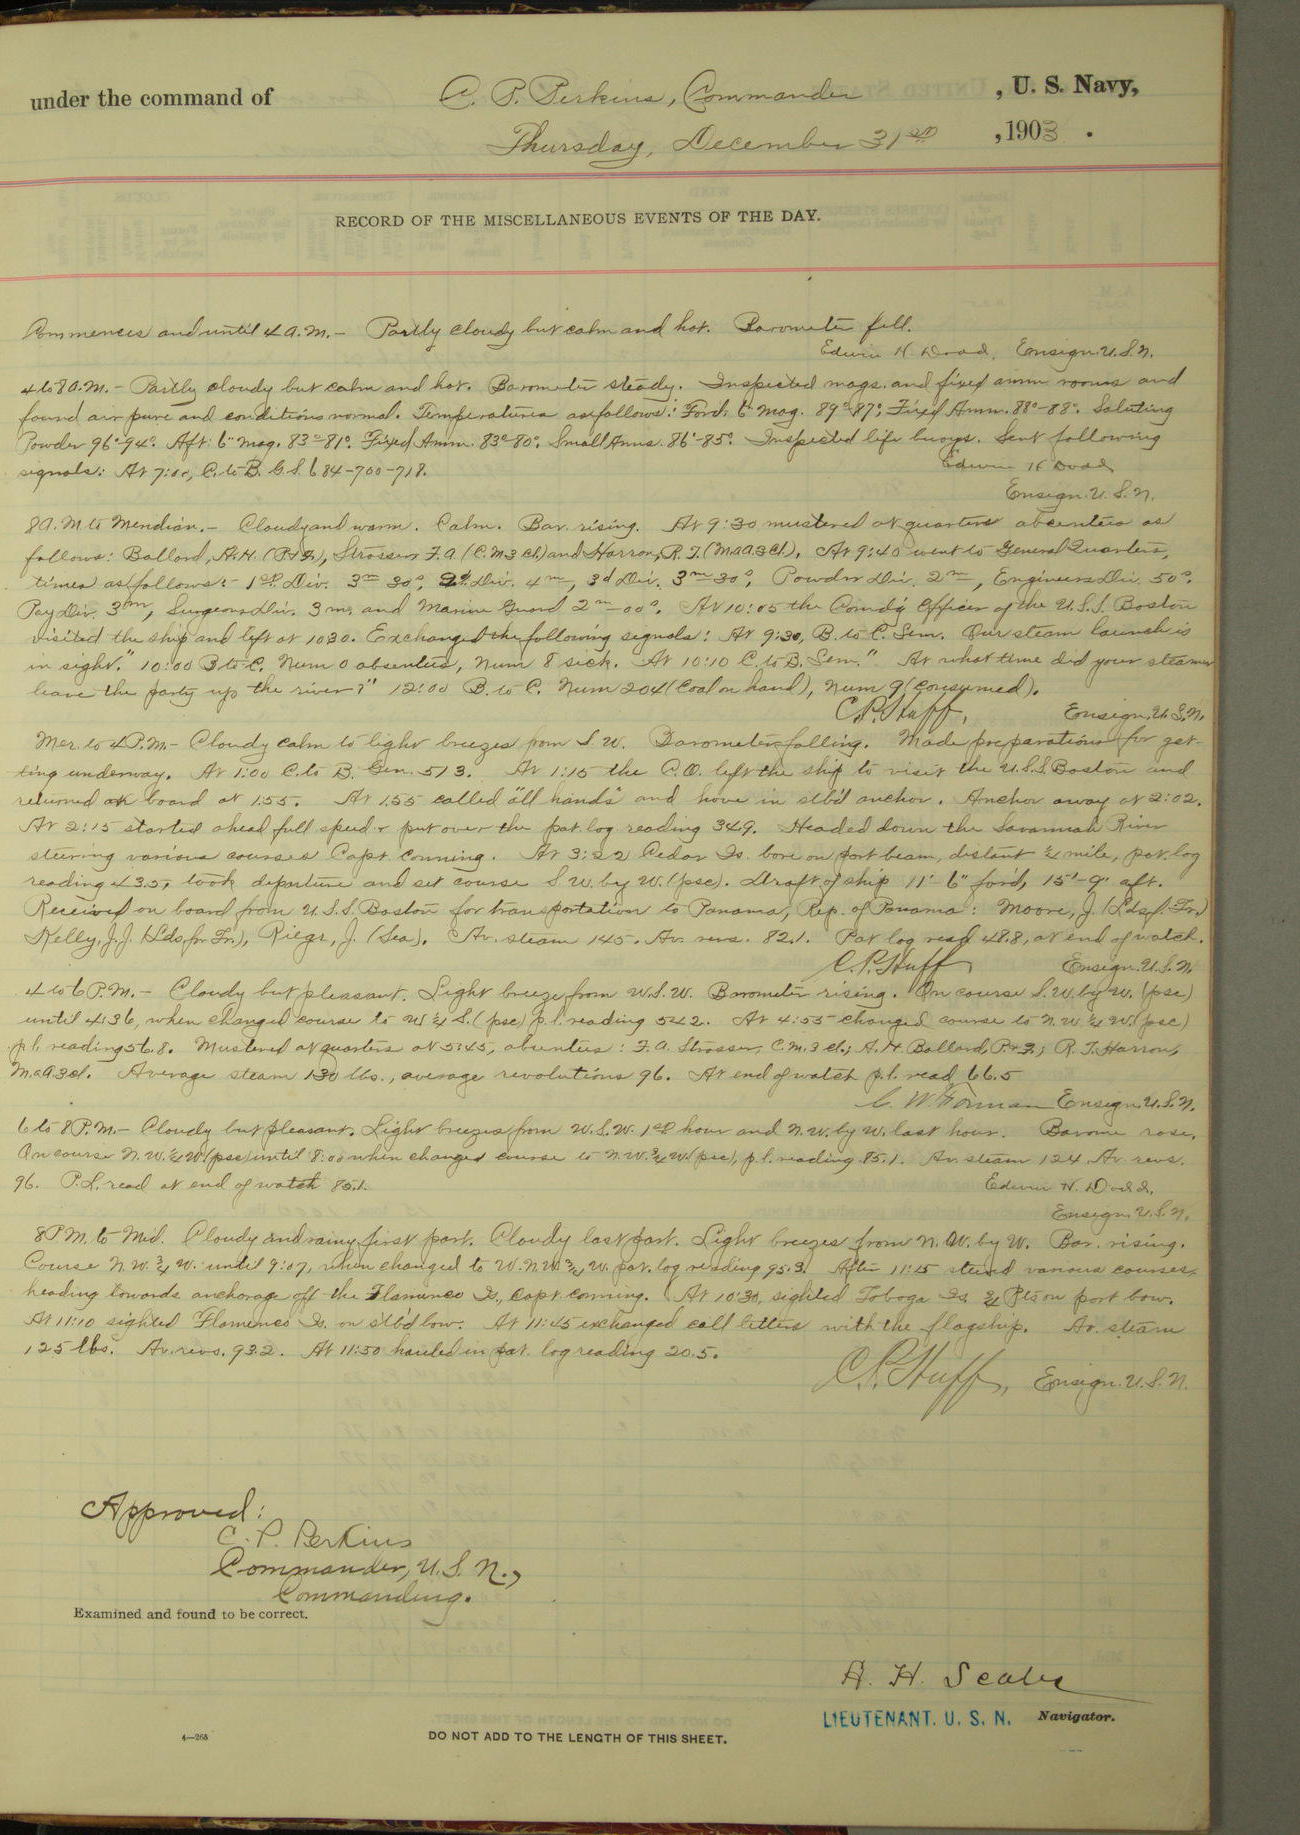 under the command of C. P. Perkins, Commander , U. S. Navy,
Thursday, December 31st , 1903 .
RECORD OF THE MISCELLANEOUS EVENTS OF THE DAY.
Commences and until 4 A.M. – Partly cloudy but calm and hot. Barometer fell.
Edwin H. Dodd, Ensign U.S.N.
4 to 8 A.M. – Partly cloudy but calm and hot. Barometer steady. Inspected mags. and fixed amm rooms and
found air pure and conditions normal. Temperatures as follows: Ford. 6" Mag. 89°-87°; Fixed Amm. 88°-88°. Saluting
Powder 96°-94°. Aft. 6" mag. 83°-81°. Fixed Amm. 83°-80°. Small Arms. 86°-85°. Inspected life buoys. Sent following
signals: At 7:00, C. to B. G.S. 684-700-718.
Edwin H Dodd
Ensign. U.S.N.
8 A.M to Meridian. – Cloudy and warm. Calm. Bar. rising. At 9:30 mustered at quarters absentees as
follows: Ballard, A.H. (P&F.), Strosser F.A. (C.M. 3 cl.) and Harron, R.T. (M.a.a 3 cl.). At 9:40 went to General Quarters,
times as follows: – 1st Div. 3m 30s, 2d Div. 4m, 3d Div. 3m 30s, Powder Div. 2m, Engineers Div. 50s.
Pay Div. 3m, Surgeons Div. 3m, and Marine Guard 2m-00s. At 10:05 the Comd'g Officer of the U.S.S. Boston
visited the ship and left at 1030. Exchanged the following signals: At 9:30, B. to C. Sem. Our steam launch is
in sight." 10:00 B to C. Num 0 absentees, Num 8 sick. At 10:10 C. to B. Sem. "At what time did your steamer
leave the party up the river?" 12:00 B. to C. Num 204 (Coal on hand), Num 9 (consumed).
C.P. Huff, Ensign, U.S.N.
Mer. to 4 P.M. – Cloudy calm to light breezes from S.W. Barometer falling. Made preparations for get-
ting underway. At 1:00 C. to B. Gen. 513. At 1:15 the C.O. left the ship to visit the U.S.S. Boston and
returned on board at 1:55. At 1:55 called "all hands" and hove in stb'd anchor. Anchor away at 2:02.
At 2:15 started ahead full speed & put over the pat. log reading 34.9. Headed down the Savannah River
steering various courses Capt. conning. At 3:22 Cedar Is. bore on port beam, distant ¼ mile, pat. log
reading 43.5, took departure and set course S.W. by W. (psc). Draft of ship 11'-6" for'd, 15'-9" aft.
Received on board from U.S.S. Boston for transportation to Panama, Rep. of Panama: Moore, J. (Lds. f. Tr.)
Kelly, J.J. (Lds. for Tr.), Riegr, J. (Sea). Av. steam 145. Av. revs. 82.1. Pat log read 48.8, at end of watch.
C.P. Huff Ensign. U.S.N.
4 to 6 P.M. – Cloudy but pleasant. Light breeze from W.S.W. Barometer rising. On course S.W. by W. (psc)
until 4:36, when changed course to W ¼ S. (psc) p.l. reading 54.2. At 4:55 changed course to N.W. ¼ W. (psc)
p.l. reading 56.8. Mustered at quarters at 5:45, absentees: F.A. Strosser, C.M. 3 cl.; A.H. Ballard, P.&F.; R.T. Harron,
M.a.a 3 cl. Average steam 130 lbs., average revolutions 96. At end of watch p.l. read 66.5
C. W. Forman Ensign U.S.N.
6 to 8 P.M. – Cloudy but pleasant. Light breezes from W.S.W. 1st hour and N.W. by W. last hour. Barome rose.
On course N.W. ¼ W. (psc) until 8:00 when changed course to N.W. ¾ W. (psc), p.l. reading 85.1. Av. steam 124. Av. revs.
96. P.L. read at end of watch 85.1.
Edwin H. Dodd,
Ensign. U.S.N.
8 P.M. to Mid. Cloudy and rainy first part. Cloudy last part. Light breezes from N.W. by W. Bar. rising.
Course N.W. ¾ W. until 9:07, when changed to W.N.W. ¾ W. pat. log reading 95.3. After 11:15 steered various courses,
heading towards anchorage off the Flamenco Is., Capt. conning. At 10:30, sighted Taboga Is. ¾ Pts on port bow.
At 11:10 sighted Flamenco Is. on stb'd bow. At 11:45 exchanged call letters with the flagship. Av. steam
125 lbs. Av. revs. 93.2. At 11:50 hauled in pat. log reading 20.5.
C.P. Huff, Ensign. U.S.N.
Approved:
C. P. Perkins
Commander, U.S.N.,
Commanding.
Examined and found to be correct.
A. H. Scales
LIEUTENANT. U. S. N. Navigator.
4—268
DO NOT ADD TO THE LENGTH OF THIS SHEET.